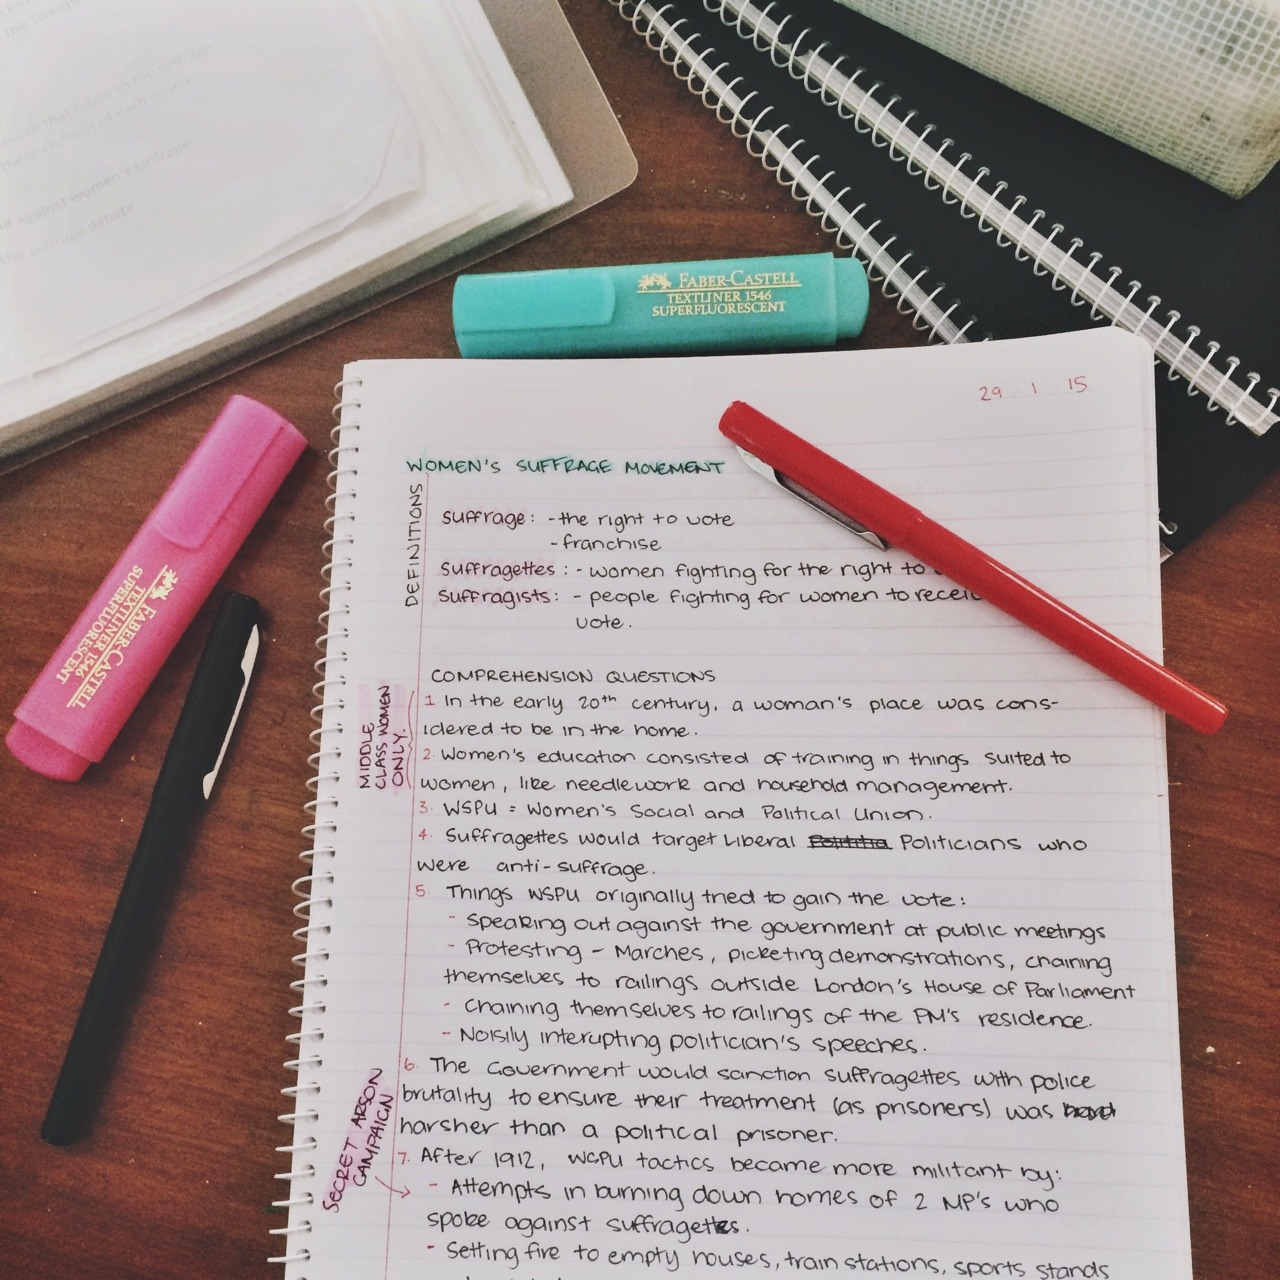 the Twenti
ere that relate to the suffrage
the findings of each source
d against women's suffrage
the suffrage debate
FABER-CASTELL
TEXTLINER 1546
SUPERFLUORESCENT
FABER-CASTELL
TEXTLINER 1546
SUPERFLUORESCENT
29 1 15
WOMEN'S SUFFRAGE MOVEMENT
DEFINITIONS
Suffrage: - the right to vote
- franchise
Suffragettes: - women fighting for the right to
Suffragists: - people fighting for women to recei
vote.
COMPREHENSION QUESTIONS
MIDDLE
CLASS WOMEN
ONLY.
1. In the early 20th century, a woman's place was cons-
idered to be in the home.
2. Women's education consisted of training in things suited to
women, like needlework and household management.
3. WSPU = Women's Social and Political Union.
4. Suffragettes would target Liberal Politicians who
were anti-suffrage.
5. Things WSPU originally tried to gain the vote:
- Speaking out against the government at public meetings
- Protesting - Marches, picketing demonstrations, chaining
themselves to railings outside London's House of Parliament
- Chaining themselves to railings of the PM's residence.
- Noisily interupting politician's speeches.
6. The Government would sanction suffragettes with police
brutality to ensure their treatment (as prisoners) was hard
harsher than a political prisoner.
SECRET ARSON
CAMPAIGN
7. After 1912, WSPU tactics became more militant by:
- Attempts in burning down homes of 2 MP's who
spoke against suffragettes.
- Setting fire to empty houses, train stations, sports stands